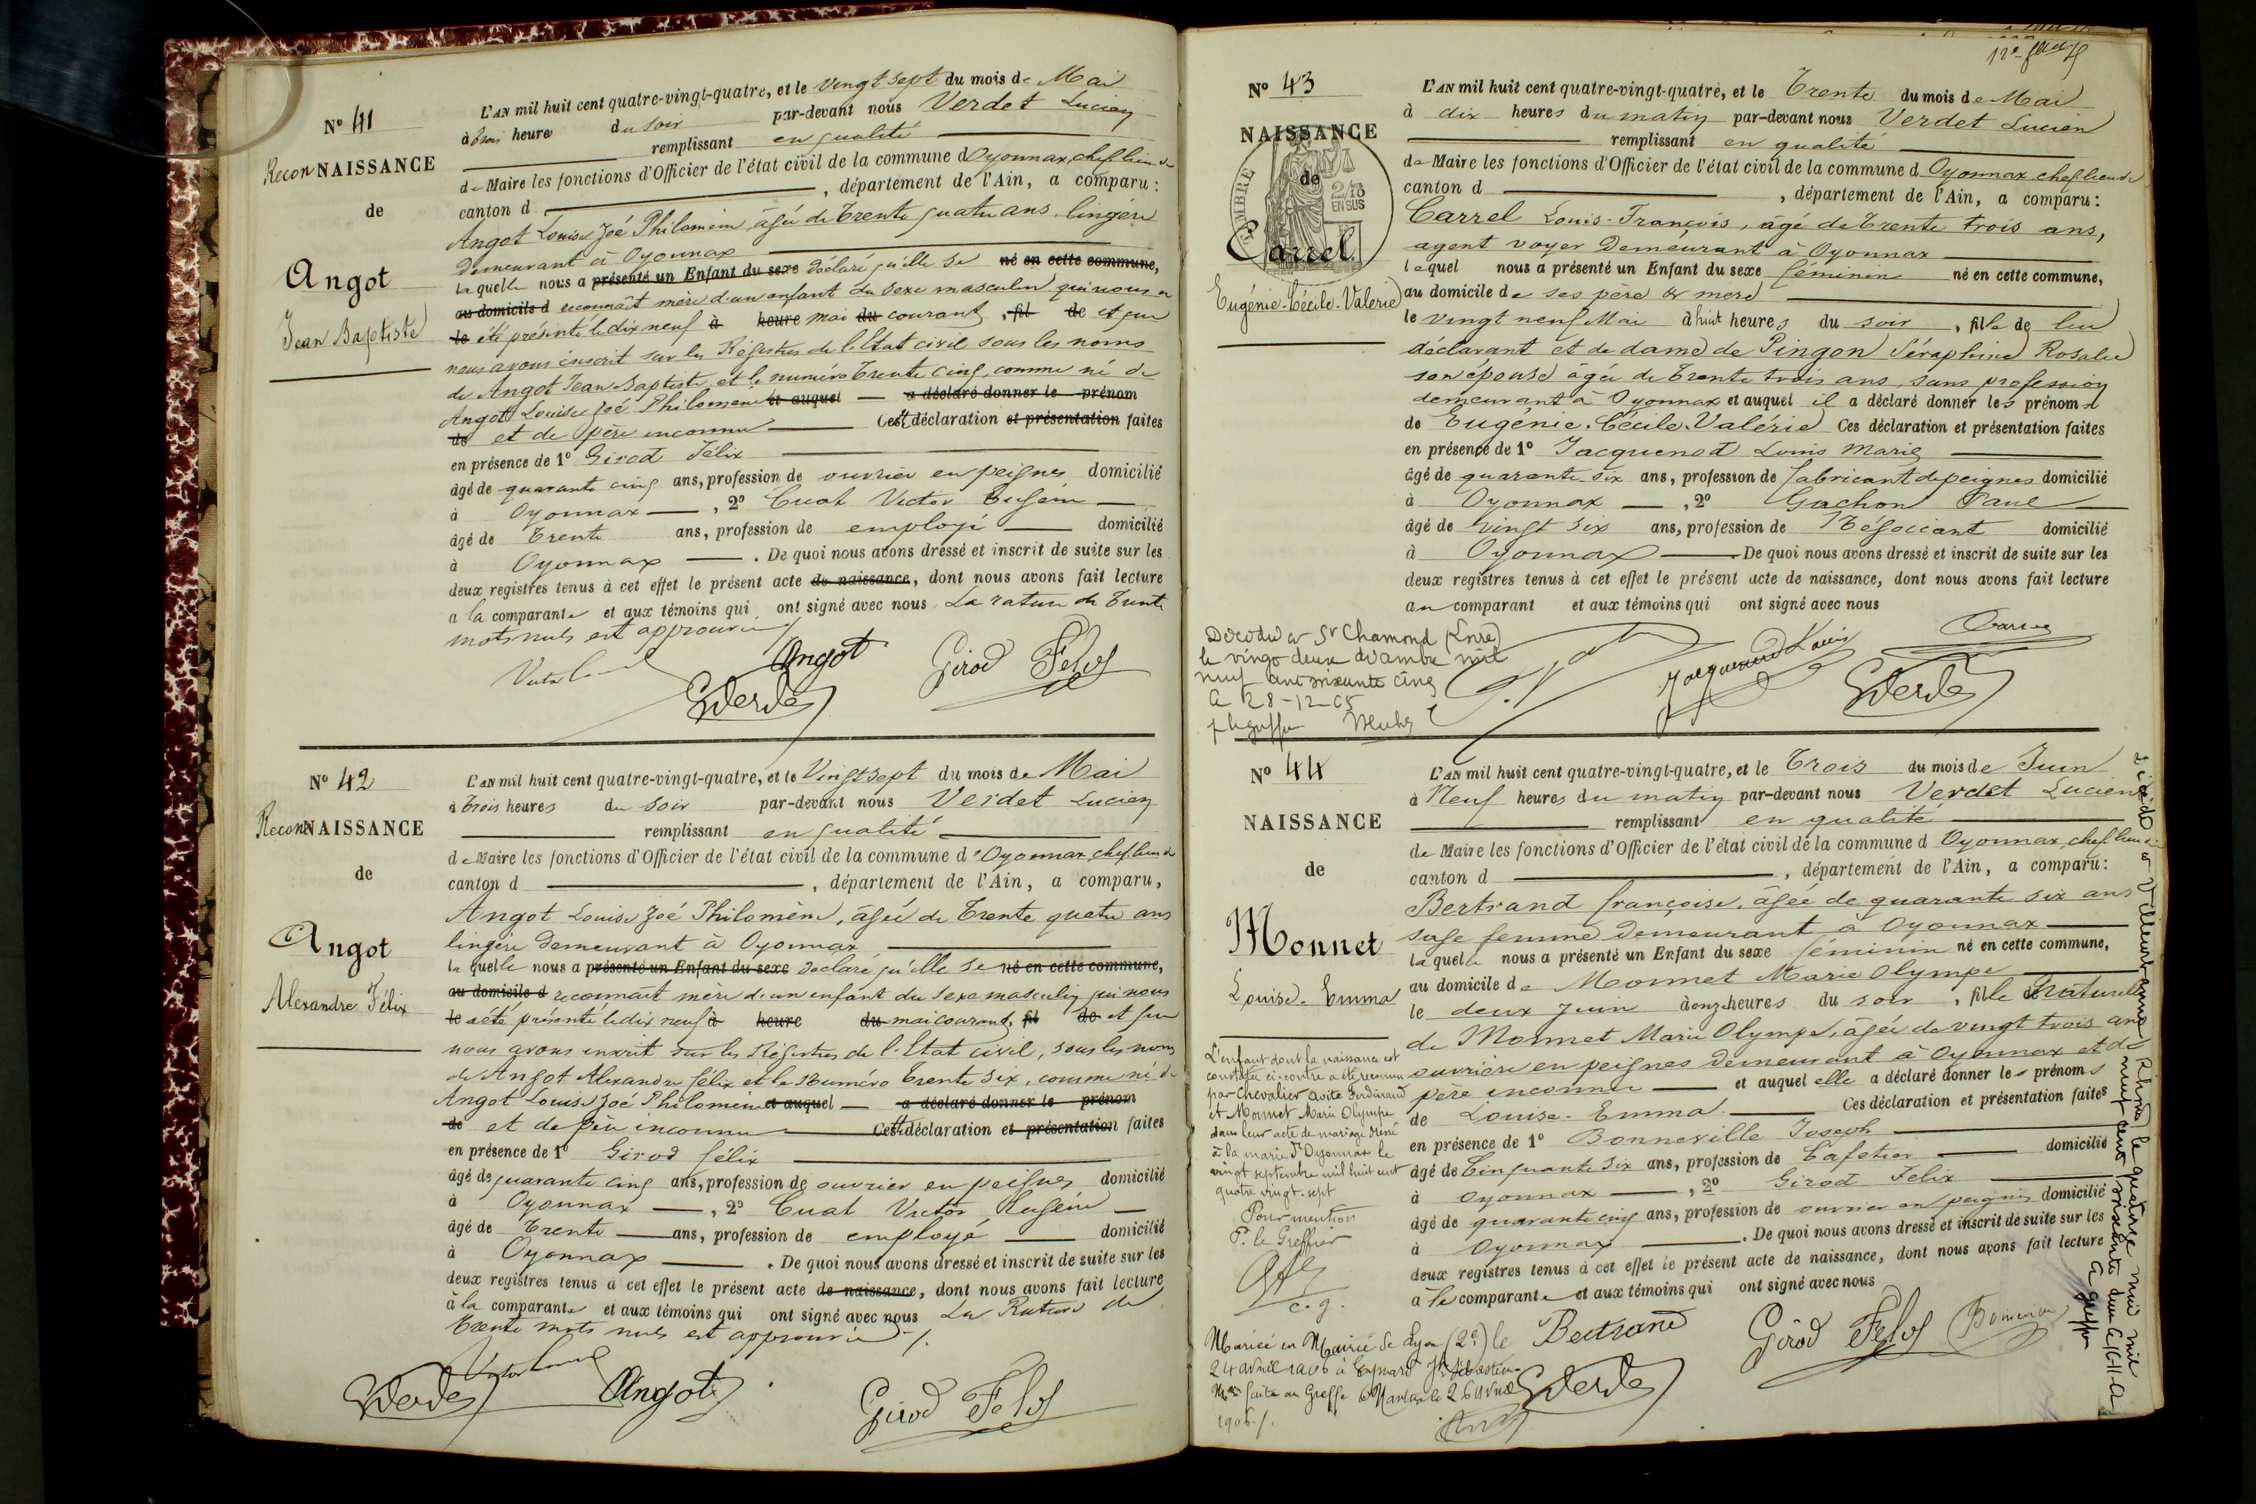 Nº 41
ReconNAISSANCE
de
Angot
Jean Baptiste
L'AN mil huit cent quatre-vingt-quatre, et le vingt sept du mois de Mai
à trois heure du soir par-devant nous Verdet Lucien
remplissant en qualité
de Maire les fonctions d'Officier de l'état civil de la commune d'Oyonnax, chef lieu de
canton d , département de l'Ain, a comparu :
Angot Louise Zoé Philomène, âgée de trente quatre ans, lingère
demeurant à Oyonnax
laquelle nous a présenté un Enfant du sexe déclaré qu'elle se né en cette commune,
au domicile d reconnaît mère d'un enfant du sexe masculin qui nous a
le été présenté le dix neuf à heure mai du courant, fil de et que
nous avons inscrit sur les Régistres de l'Etat civil sous les noms
de Angot Jean Baptiste et le numéro trente cinq comme né de
Angot Louise Zoé Philomène et auquel a déclaré donner le prénom
de et de père inconnu Cette déclaration et présentation faites
en présence de 1º Girod Félix
âgé de quarante cinq ans, profession de ouvrier en peignes domicilié
à Oyonnax , 2º Cuat Victor Eugène
âgé de trente ans, profession de employé domicilié
à Oyonnax . De quoi nous avons dressé et inscrit de suite sur les
deux registres tenus à cet effet le présent acte de naissance, dont nous avons fait lecture
a la comparante et aux témoins qui ont signé avec nous La rature de trente
mots nuls est approuvée
Angot Girod Félix
Verdet
Nº 42
ReconNAISSANCE
de
Angot
Alexandre Félix
L'AN mil huit cent quatre-vingt-quatre, et le Vingt sept du mois de Mai
à trois heures du soir par-devant nous Verdet Lucien
remplissant en qualité
de Maire les fonctions d'Officier de l'état civil de la commune d'Oyonnax, chef lieu de
canton d , département de l'Ain, a comparu,
Angot Louise Zoé Philomène, âgée de trente quatre ans
lingère demeurant à Oyonnax
laquelle nous a présenté un Enfant du sexe déclaré qu'elle se né en cette commune,
au domicile d reconnaît mère d'un enfant du sexe masculin qui nous
le a été présenté le dix neuf à heure du mai courant, fil de et que
nous avons inscrit sur les Régistres de l'Etat civil, sous les noms
de Angot Alexandre Félix et le numéro trente six, comme né de
Angot Louise Zoé Philomène et auquel a déclaré donner le prénom
de et de père inconnu Cette déclaration et présentation faites
en présence de 1º Girod Félix
âgé de quarante cinq ans, profession de ouvrier en peignes domicilié
à Oyonnax , 2º Cuat Victor Eugène
âgé de trente ans, profession de employé domicilié
à Oyonnax . De quoi nous avons dressé et inscrit de suite sur les
deux registres tenus à cet effet le présent acte de naissance, dont nous avons fait lecture
à la comparante et aux témoins qui ont signé avec nous La Rature de
trente mots nuls est approuvée
Verdet Angot Girod Félix
Nº 43
NAISSANCE
de
Carrel
Eugénie-Cécile-Valérie
L'AN mil huit cent quatre-vingt-quatre, et le Trente du mois de Mai
à dix heures du matin par-devant nous Verdet Lucien
remplissant en qualité
de Maire les fonctions d'Officier de l'état civil de la commune d Oyonnax, chef lieu de
canton d , département de l'Ain, a comparu :
Carrel Louis-François, âgé de trente trois ans,
agent voyer demeurant à Oyonnax
lequel nous a présenté un Enfant du sexe féminin né en cette commune,
au domicile de ses père & mère
le vingt neuf Mai à huit heures du soir , fille de lui
déclarant et de dame de Pingon Séraphine Rosalie
son épouse âgée de trente trois ans, sans profession
demeurant à Oyonnax et auquel il a déclaré donner les prénoms
de Eugénie-Cécile-Valérie Ces déclaration et présentation faites
en présence de 1º Jacquenod Louis Marie
âgé de quarante six ans, profession de fabricant de peignes domicilié
à Oyonnax , 2º Gachon Paul
âgé de vingt six ans, profession de Négociant domicilié
à Oyonnax De quoi nous avons dressé et inscrit de suite sur les
deux registres tenus à cet effet le présent acte de naissance, dont nous avons fait lecture
au comparant et aux témoins qui ont signé avec nous
Décédée à St Chamond (Loire)
le vingt deux décembre mil
neuf cent soixante cinq
le 28-12-65
Jacquenod Louis Verdet
Nº 44
NAISSANCE
de
Monnet
Louise-Emma
L'AN mil huit cent quatre-vingt-quatre, et le Trois du mois de Juin
à Neuf heures du matin par-devant nous Verdet Lucien
remplissant en qualité
de Maire les fonctions d'Officier de l'état civil de la commune d Oyonnax, chef lieu de
canton d , département de l'Ain, a comparu :
Bertrand françoise, âgée de quarante six ans
sage femme demeurant à Oyonnax
laquelle nous a présenté un Enfant du sexe féminin né en cette commune,
au domicile de Monnet Marie Olympe
le deux Juin à onze heures du soir , fille de naturelle
de Monnet Marie Olympe, âgée de vingt trois ans
ouvrière en peignes demeurant à Oyonnax et de
père inconnu et auquel elle a déclaré donner les prénoms
de Louise-Emma Ces déclaration et présentation faites
en présence de 1º Bonneville Joseph
âgé de Cinquante six ans, profession de Cafetier domicilié
à Oyonnax , 2º Girod Félix
âgé de quarante cinq ans, profession de ouvrier en peignes domicilié
à Oyonnax . De quoi nous avons dressé et inscrit de suite sur les
deux registres tenus à cet effet le présent acte de naissance, dont nous avons fait lecture
a la comparante et aux témoins qui ont signé avec nous
Bertrand Girod Félix
Verdet
L'enfant dont la naissance est
constatée ci-contre a été reconnu
par Chevalier Ferdinand
et Monnet Marie Olympe
dans leur acte de mariage dressé
à la mairie d'Oyonnax le
vingt septembre mil huit cent
quatre vingt-sept
Pour mention
P. le Greffier
Mariée en Mairie de Lyon (2e) le
24 avril 1906 à
Mon faite au Greffe Nantua le 26 avril
1906
Décédée à Villeurbanne (Rhône) le quatorze mil
neuf cent soixante deux
le greffier